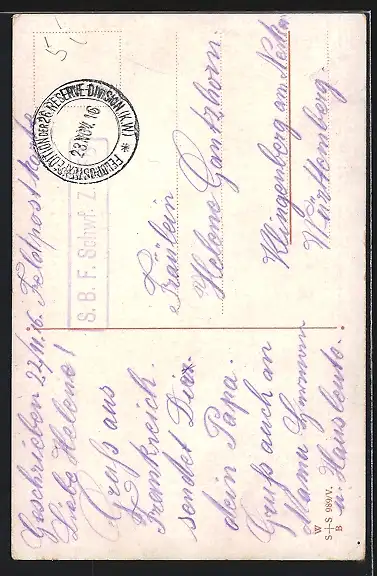 Feldpostkarte
FELDPOSTEXPEDITION DER 26. RESERVE-DIVISION (K.W.)
23 NOV. 16
S. B. F. Schwf. Z.
Fräulein
Helene Gantzhorn.
Klingenberg am Neckar
Württemberg.
Geschrieben 22/11.16.
Liebe Helene!
Gruß aus
Frankreich.
sendet Dir
dein Papa.
Gruß auch an
Mama
u. Hausleute.
W
S+S 989/V.
B